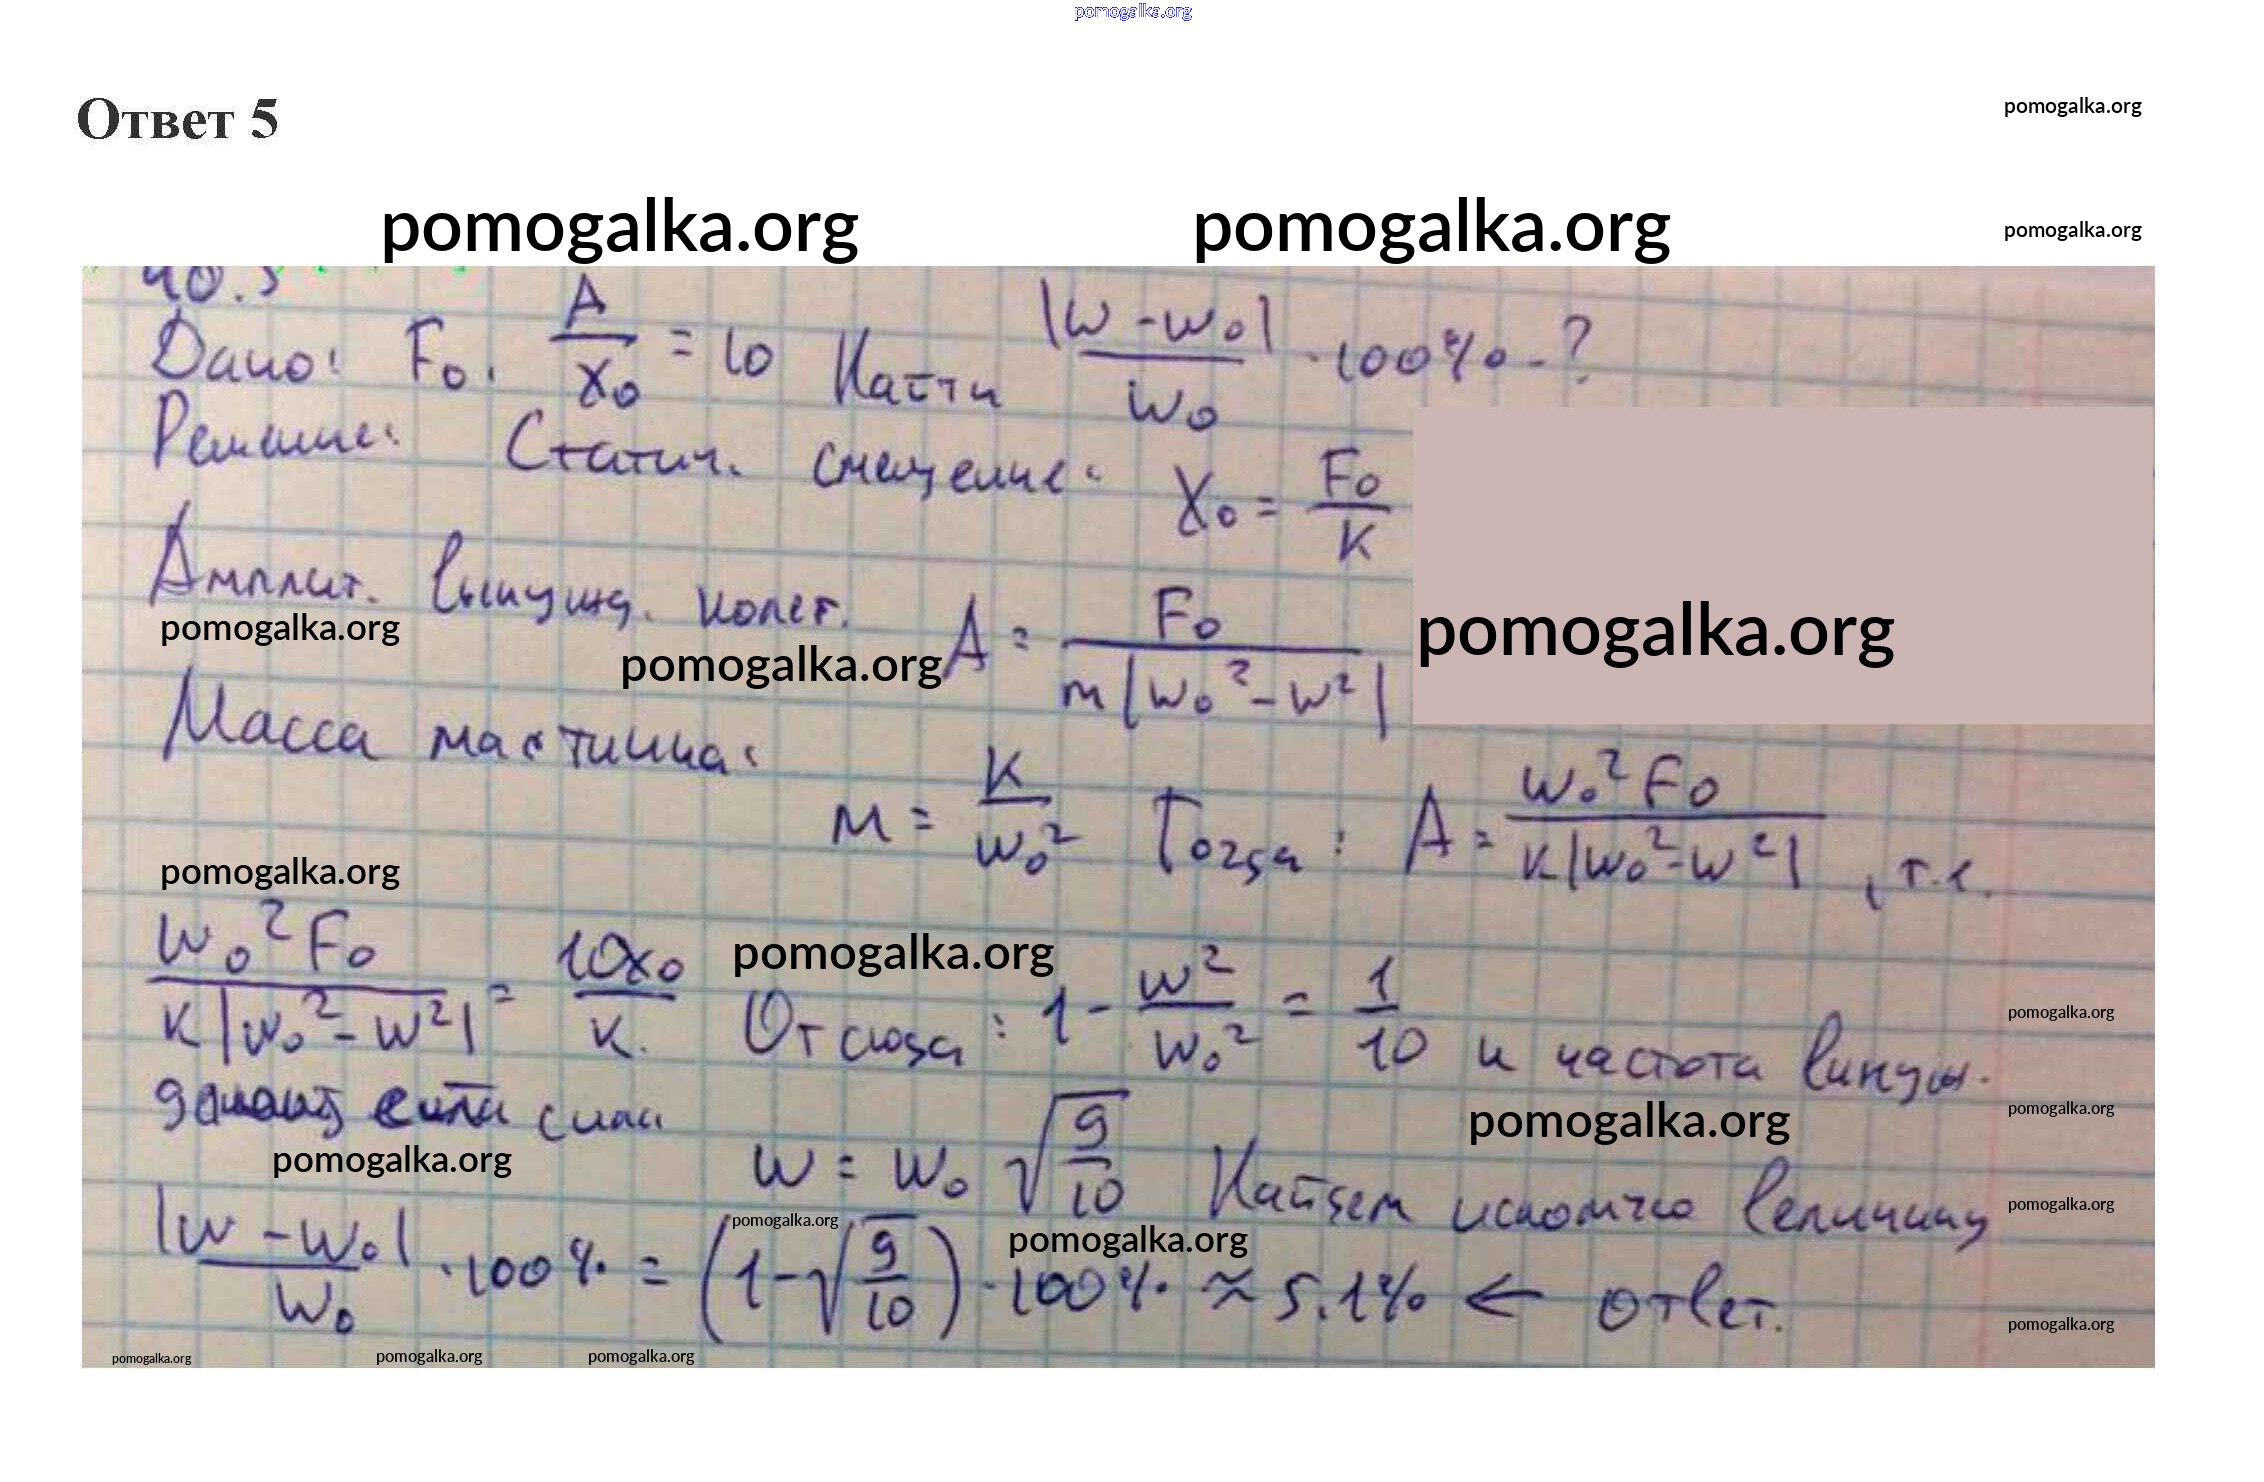 pomogalka.org
Ответ 5
pomogalka.org
pomogalka.org pomogalka.org pomogalka.org
40.5
Дано: F₀, A/x₀ = 10 Найти |w - w₀|/w₀ · 100% - ?
Решение: Статич. смещение: X₀ = F₀/k
Амплит. вынужд. колеб. A = F₀/(m|w₀² - w²|)
pomogalka.org
pomogalka.org
pomogalka.org
Масса маятника:
m = k/w₀² Тогда: A = w₀²F₀/(k|w₀² - w²|), т.к.
pomogalka.org
w₀²F₀/(k|w₀² - w²|) = 10x₀/k. Отсюда: 1 - w²/w₀² = 1/10 и частота вынуж-
pomogalka.org
pomogalka.org
дающ сила силы
pomogalka.org
pomogalka.org
pomogalka.org
w = w₀ √(9/10) Найдем искомую величину
pomogalka.org
pomogalka.org
pomogalka.org
|w - w₀|/w₀ · 100% = (1 - √(9/10)) · 100% ≈ 5.1% ← ответ.
pomogalka.org
pomogalka.org pomogalka.org pomogalka.org